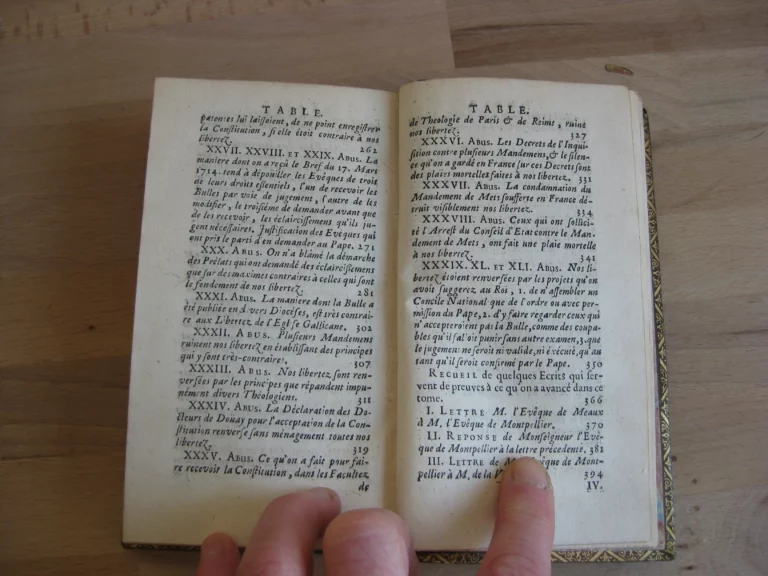 TABLE.
patentes lui laissoient, de ne point enregistrer
la Constitution, si elle étoit contraire à nos
libertez. 262
XXVII. XXVIII. ET XXIX. ABUS. La
maniere dont on a reçû le Bref du 17. Mars
1714. tend à dépouiller les Evêques de trois
de leurs droits essentiels, l'un de recevoir les
Bulles par voie de jugement, l'autre de les
modifier, le troisiême de demander avant que
de les recevoir, les éclaircissemens qu'ils ju-
gent nécessaires. Justification des Evêques qui
ont pris le parti d'en demander au Pape. 271
XXX. ABUS. On n'a blâmé la démarche
des Prélats qui ont demandé des éclaircissemens
que sur des maximes contraires à celles qui sont
le fondement de nos libertez. 281
XXXI. ABUS. La maniere dont la Bulle a
été publiée en divers Diocèses, est très contrai-
re aux Libertez de l'Eglise Gallicane. 302
XXXII. ABUS. Plusieurs Mandemens
ruinent nos libertez en établissant des principes
qui y sont très-contraires. 307
XXXIII. ABUS. Nos libertez sont ren-
versées par les principes que répandent impu-
nément divers Théologiens. 311
XXXIV. ABUS. La Déclaration des Do-
cteurs de Douay pour l'acceptation de la Con-
stitution renverse sans ménagement toutes nos
libertez. 319
XXXV. ABUS. Ce qu'on a fait pour fai-
re recevoir la Constitution, dans les Facultez
de
TABLE.
de Theologie de Paris & de Reims, ruine
nos libertez. 327
XXXVI. ABUS. Les Decrets de l'Inqui-
sition contre plusieurs Mandemens, & le silen-
ce qu'on a gardé en France sur ces Decrets sont
des plaies mortelles faites à nos libertez. 331
XXXVII. ABUS. La condamnation du
Mandement de Mets soufferte en France dé-
truit visiblement nos libertez. 334
XXXVIII. ABUS. Ceux qui ont sollici-
té l'Arrest du Conseil d'Etat contre le Man-
dement de Mets, ont fait une plaie mortelle
à nos libertez. 341
XXXIX. XL. ET XLI. ABUS. Nos li-
bertez étoient renversées par les projets qu'on
avoit suggerez au Roi, 1. de n'assembler un
Concile National que de l'ordre ou avec per-
mission du Pape, 2. d'y faire regarder ceux qui
n'accepteroient pas la Bulle, comme des coupa-
bles qu'il faloit punir sans autre examen, 3. que
le jugement ne seroit ni valide, ni éxécuté, qu'au
tant qu'il seroit confirmé par le Pape. 350
RECUEIL de quelques Ecrits qui ser-
vent de preuves à ce qu'on a avancé dans ce
tome. 366
I. LETTRE M. l'Evêque de Meaux
à M. l'Evêque de Montpellier. 370
II. REPONSE de Monseigneur l'Evê-
que de Montpellier à la lettre précedente. 381
III. LETTRE de M. l'Evêque de Mont-
pellier à M. de la 394
IV.